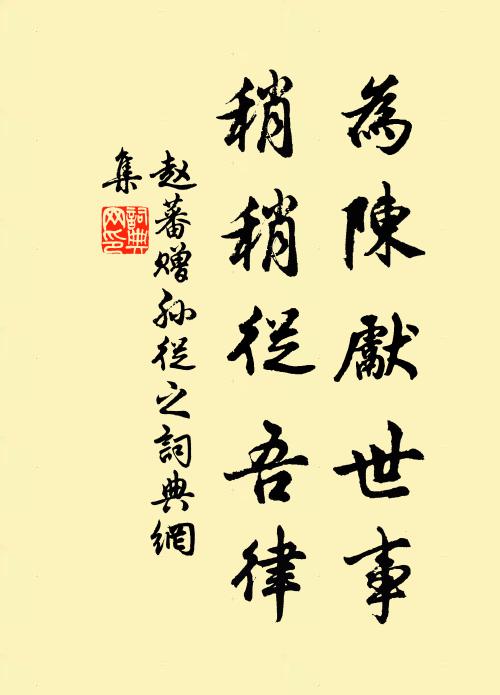 為陳獻世事
稍稍從吾律
赵蕃赠孙從之詞典網
集
詞典網印